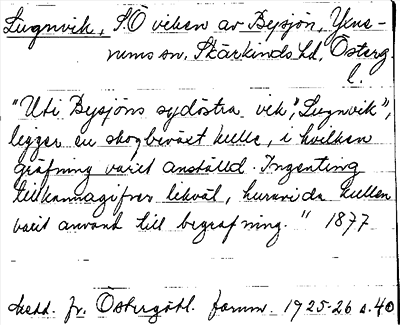 Lugnvik, S.Ö viken av Bysjön, Yxne-
rums sn, Skärkinds hd, Österg.
l.
"Uti Bysjöns sydöstra vik, "Lugnvik",
ligger en skogbeväxt kulle, i hvilken
gräfning varit anställd. Ingenting
tillkännagifver likväl, huruvida kullen
varit använd till begrafning." 1877
Medd. fr. Östergötl. fornm. 1925-26 s. 40